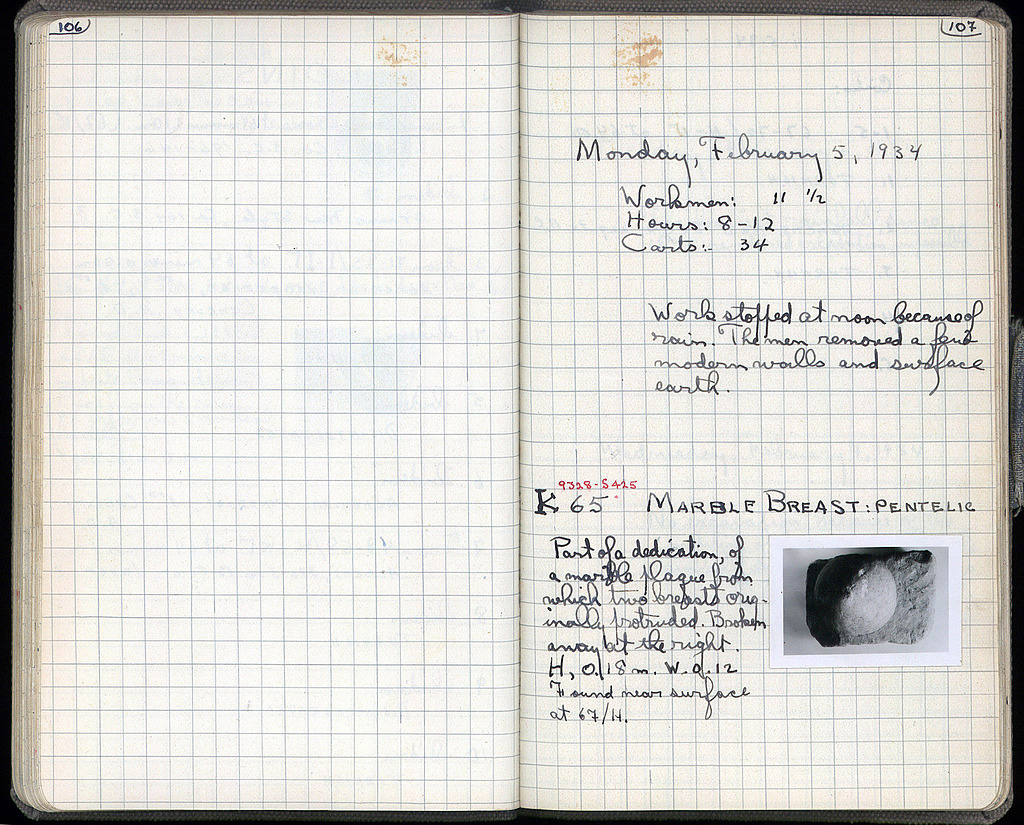 106
107
Monday, February 5, 1934
Workmen: 11 ½
Hours: 8-12
Carts:- 34
Work stopped at noon because of
rain. The men removed a few
modern walls and surface
earth.
9328-S425
K 65 MARBLE BREAST: PENTELIC
Part of a dedication, of
a marble plaque from
which two breasts orig-
inally protruded. Broken
away at the right.
H, 0.18 m. W. 0.12
Found near surface
at 67/H.